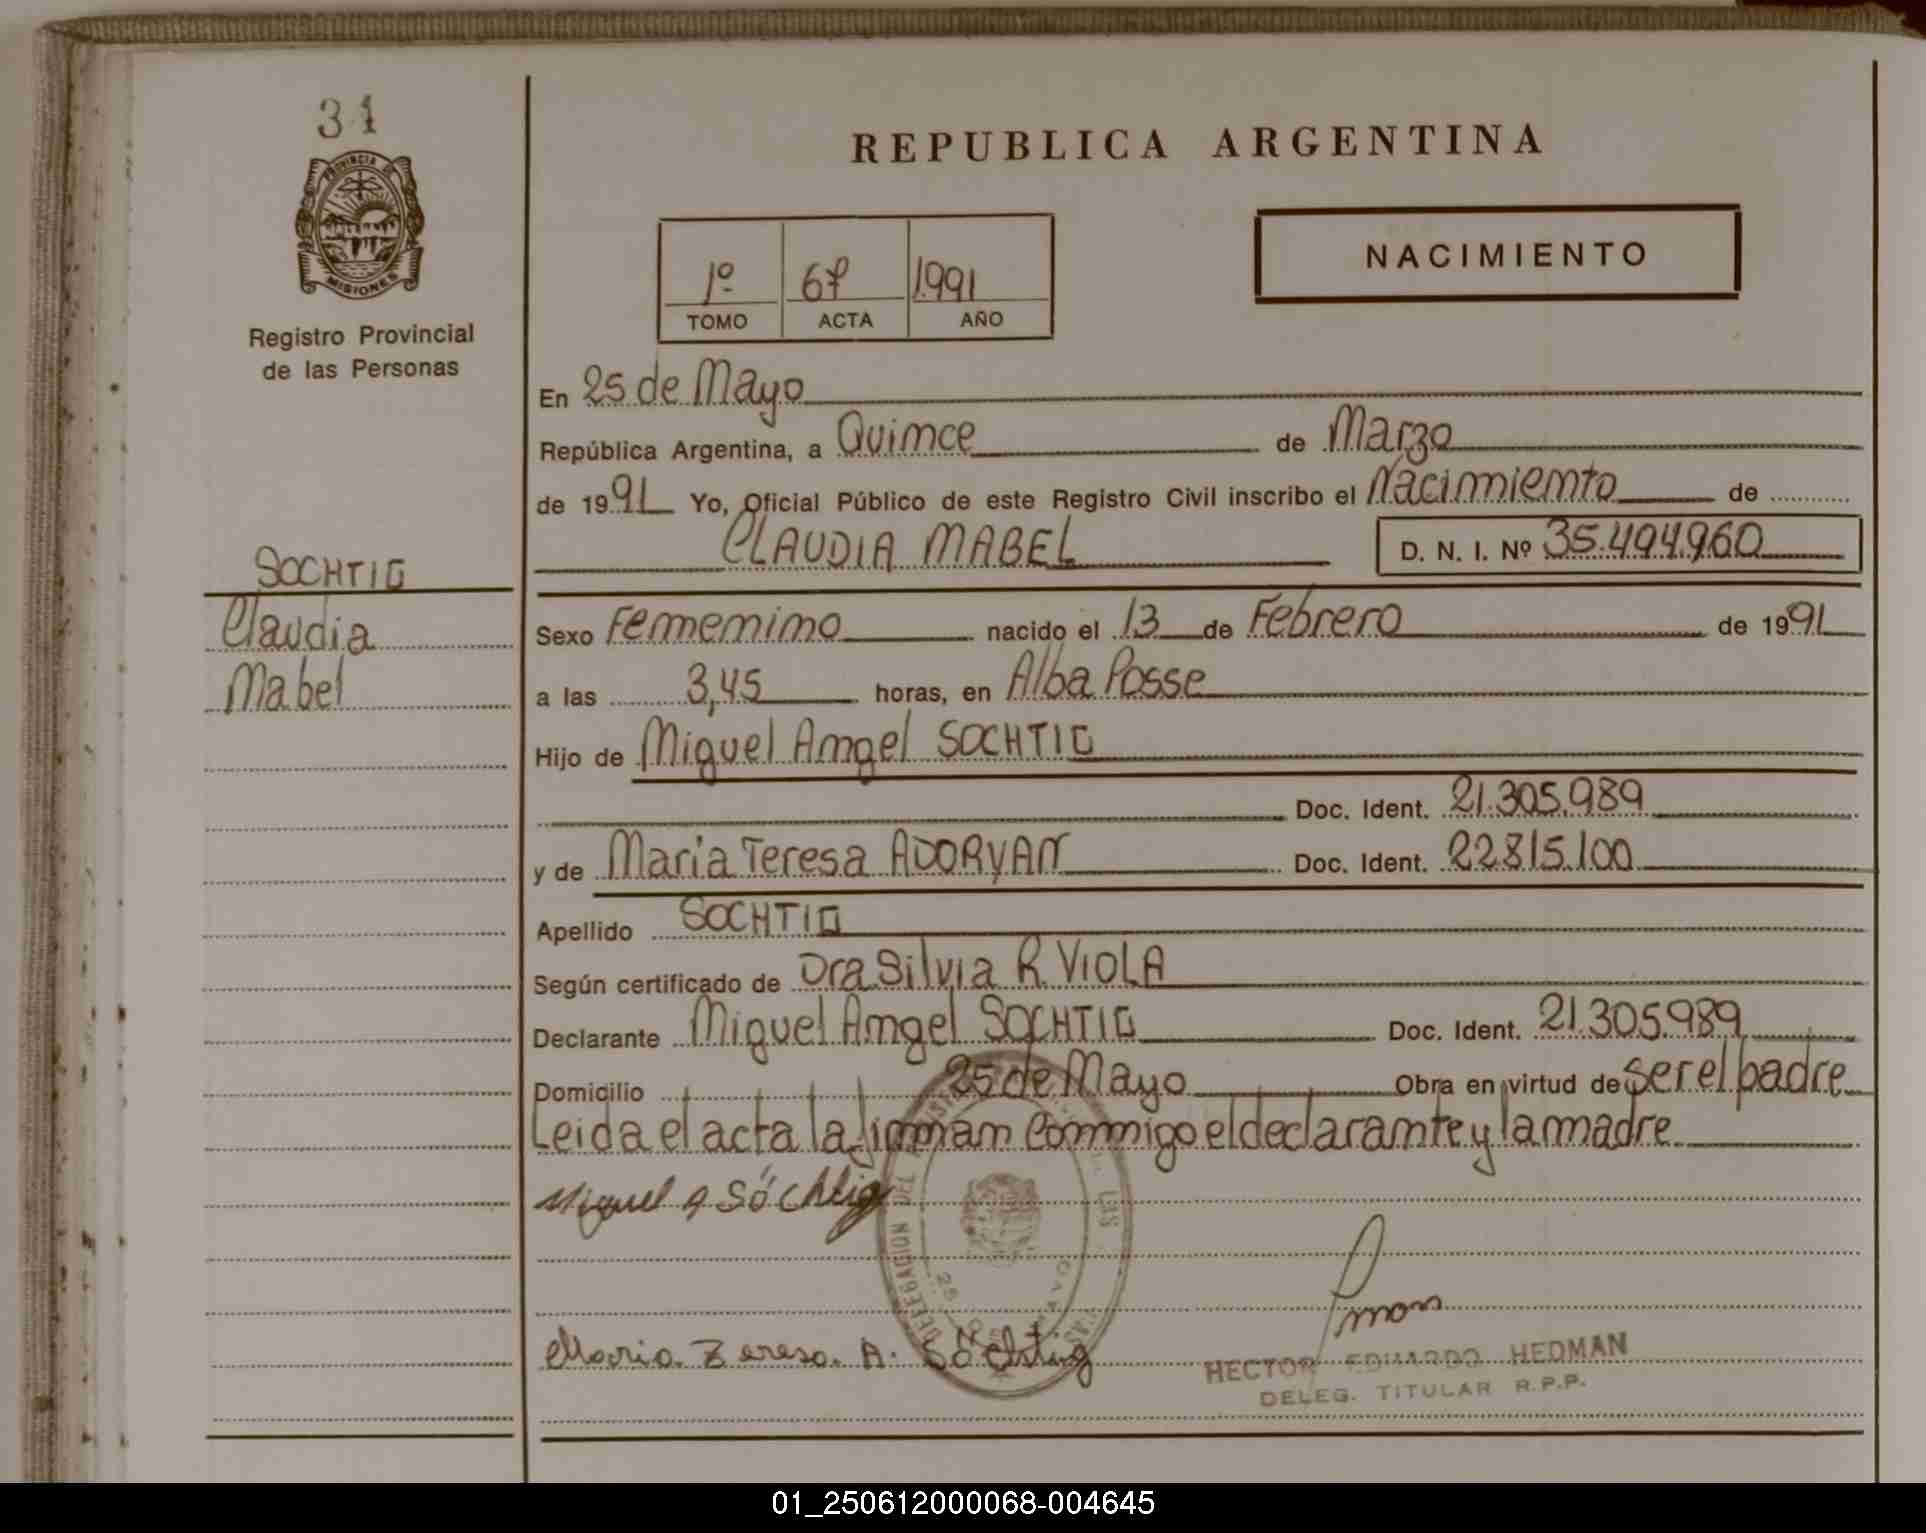 31
PROVINCIA DE
MISIONES
Registro Provincial
de las Personas
SOCHTIG
Claudia
Mabel
REPUBLICA ARGENTINA
NACIMIENTO
1º 67 1.991
TOMO ACTA AÑO
En 25 de Mayo
República Argentina, a Quince de Marzo
de 1991 Yo, Oficial Público de este Registro Civil inscribo el Nacimiento de
CLAUDIA MABEL D. N. I. Nº 35.494.960
Sexo Femenino nacido el 13 de Febrero de 1991
a las 3,45 horas, en Alba Posse
Hijo de Miguel Angel SOCHTIG
Doc. Ident. 21.305.989
y de Maria Teresa ADORYAN Doc. Ident. 22.815.100
Apellido SOCHTIG
Según certificado de Dra Silvia R. VIOLA
Declarante Miguel Angel SOCHTIG Doc. Ident. 21.305.989
Domicilio 25 de Mayo Obra en virtud de ser el padre
Leida el acta la firman conmigo el declarante y la madre
Miguel A Söchtig
DELEGACION DEL LAS
25 DE MAYO
Maria Teresa A. Söchtig
HECTOR EDUARDO HEDMAN
DELEG. TITULAR R.P.P.
01_250612000068-004645